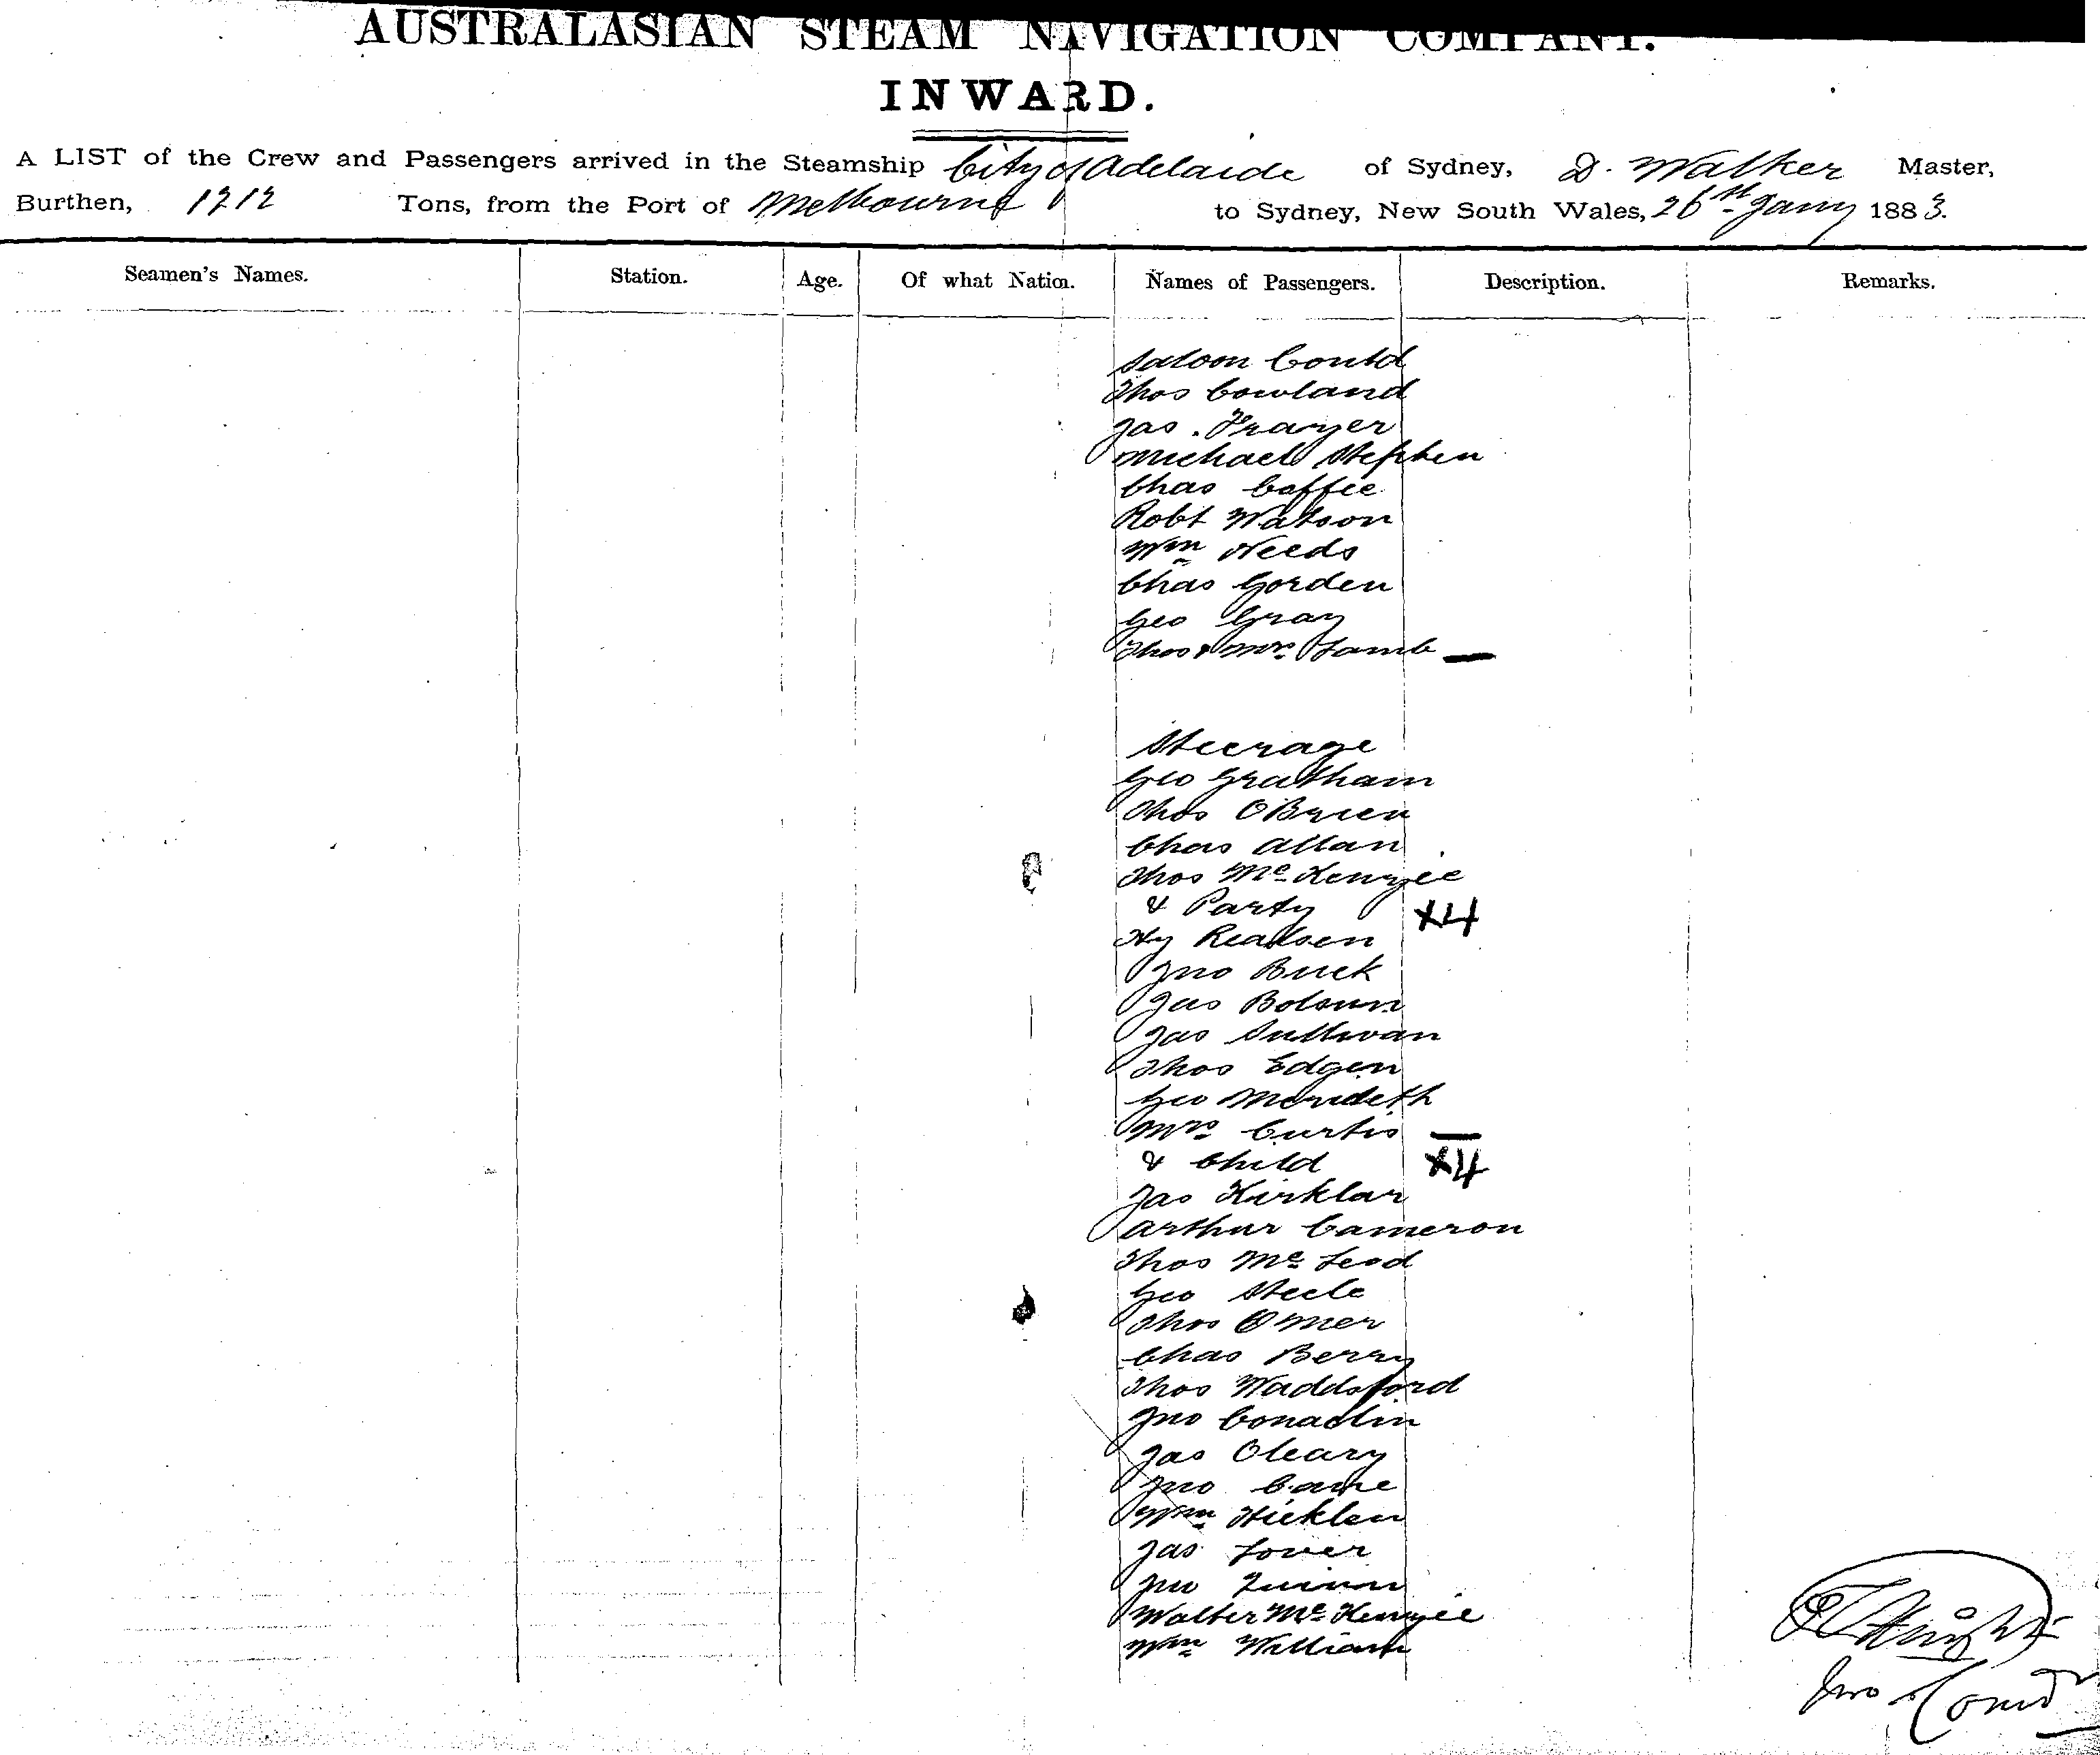 AUSTRALASIAN STEAM NAVIGATION COMPANY.
INWARD.
A LIST of the Crew and Passengers arrived in the Steamship City of Adelaide of Sydney, D. Walker Master,
Burthen, 1212 Tons, from the Port of Melbourne to Sydney, New South Wales, 26th Jany 1883.
Seamen's Names. Station. Age. Of what Nation. Names of Passengers. Description. Remarks.
Saloon Contd
Thos Cowland
Jas. Frayer
Michael Stephen
Chas Coffee
Robt Watson
Wm Needs
Chas Gorden
Geo Gray
Thos & Mrs Lamb
Steerage
Geo Gratham
Thos OBrien
Chas Allan
Thos McKenzie
& Party X4
Hy Realsen
Jno Buck
Jas
Jas Sullivan
Thos Edgen
Geo Merideth
Mrs Curtis
& Child X4
Jas Kirklar
Arthur Cameron
Thos McLeod
Geo Steele
Thos Omer
Chas Berry
Thos Waddsford
Jno Conaolin
Jas Oleary
Jno Came
Wm Hicklen
Jas Lover
Jno Quinn
Walter McKenzie
Wm William